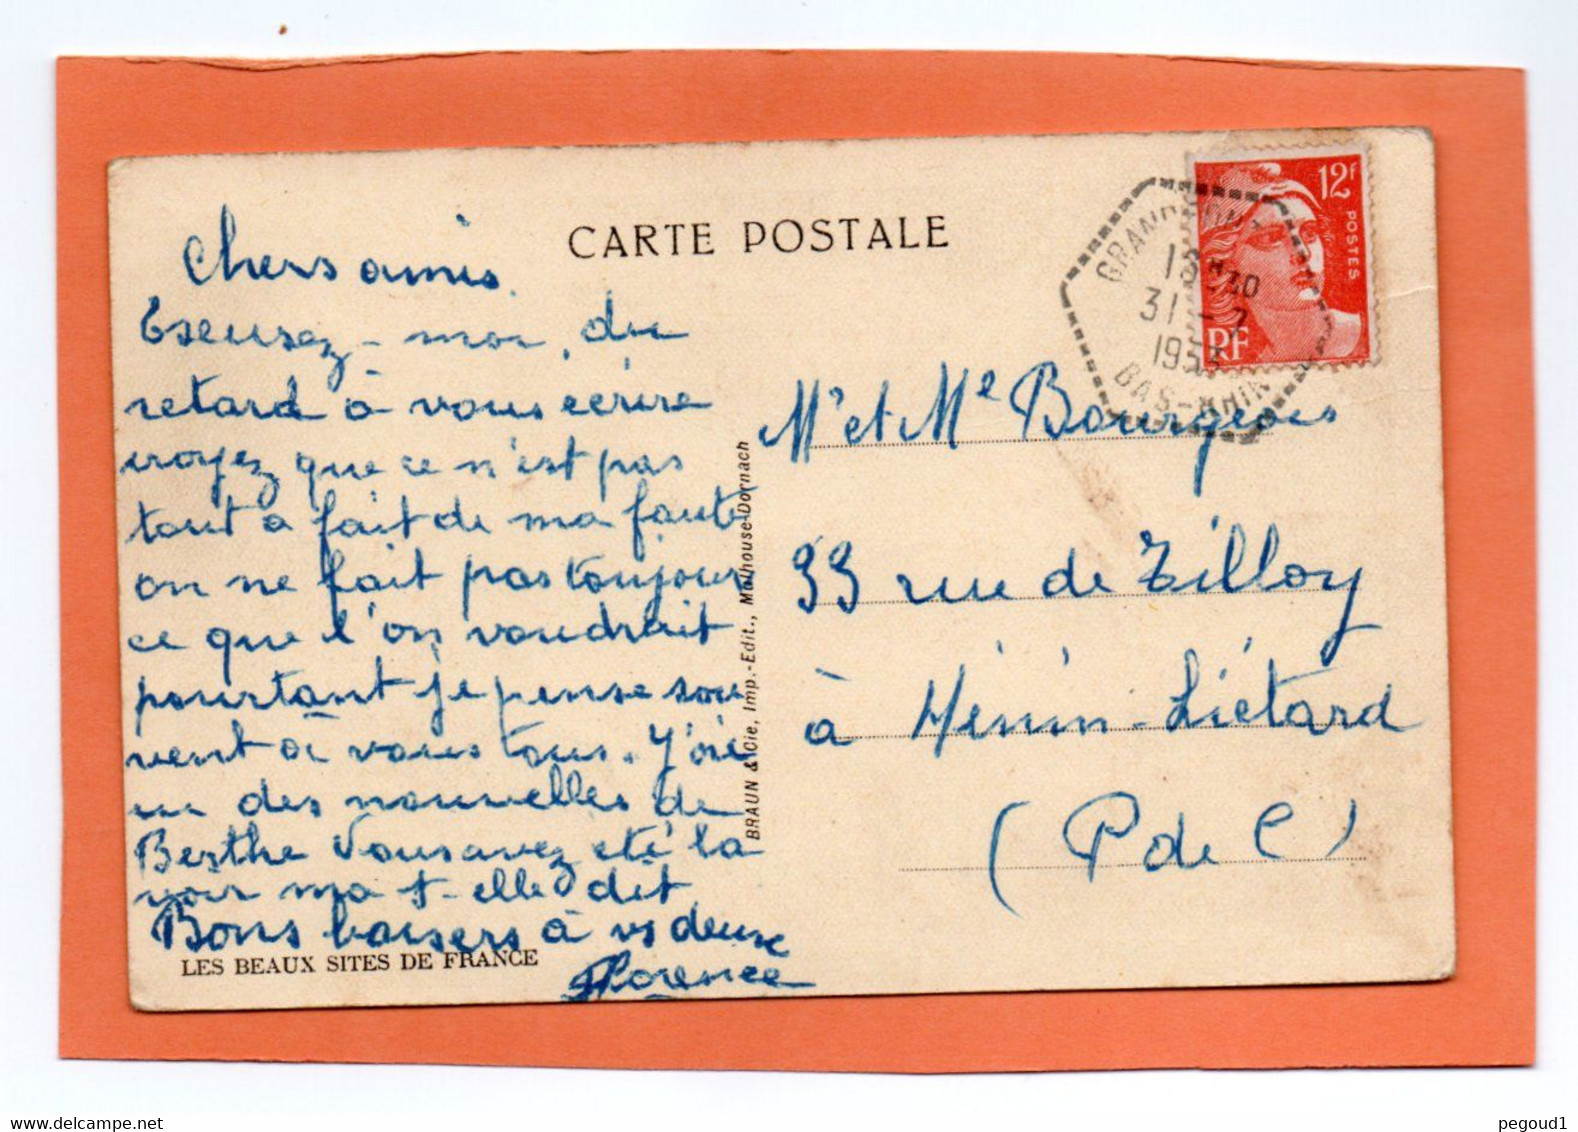 CARTE POSTALE
Chers amis.
Excusez-moi, du
retard à vous écrire
croyez que ce n'est pas
tout a fait de ma faute
on ne fait pas toujours
ce que l'on voudrait
pourtant je pense sou
vent à vous tous. J'ai
eu des nouvelles de
Berthe Vous avez été la
voir m'a t-elle dit
Bons baisers à vs deux
Florence
LES BEAUX SITES DE FRANCE
BRAUN & Cie, Imp.-Edit., Mulhouse-Dornach
12F
POSTES
RF
31 - 7
BAS-RHIN
Mr et Me Bourgeois
33 rue de Tilloy
à Hénin-Liétard
(P de C)
pegoud1